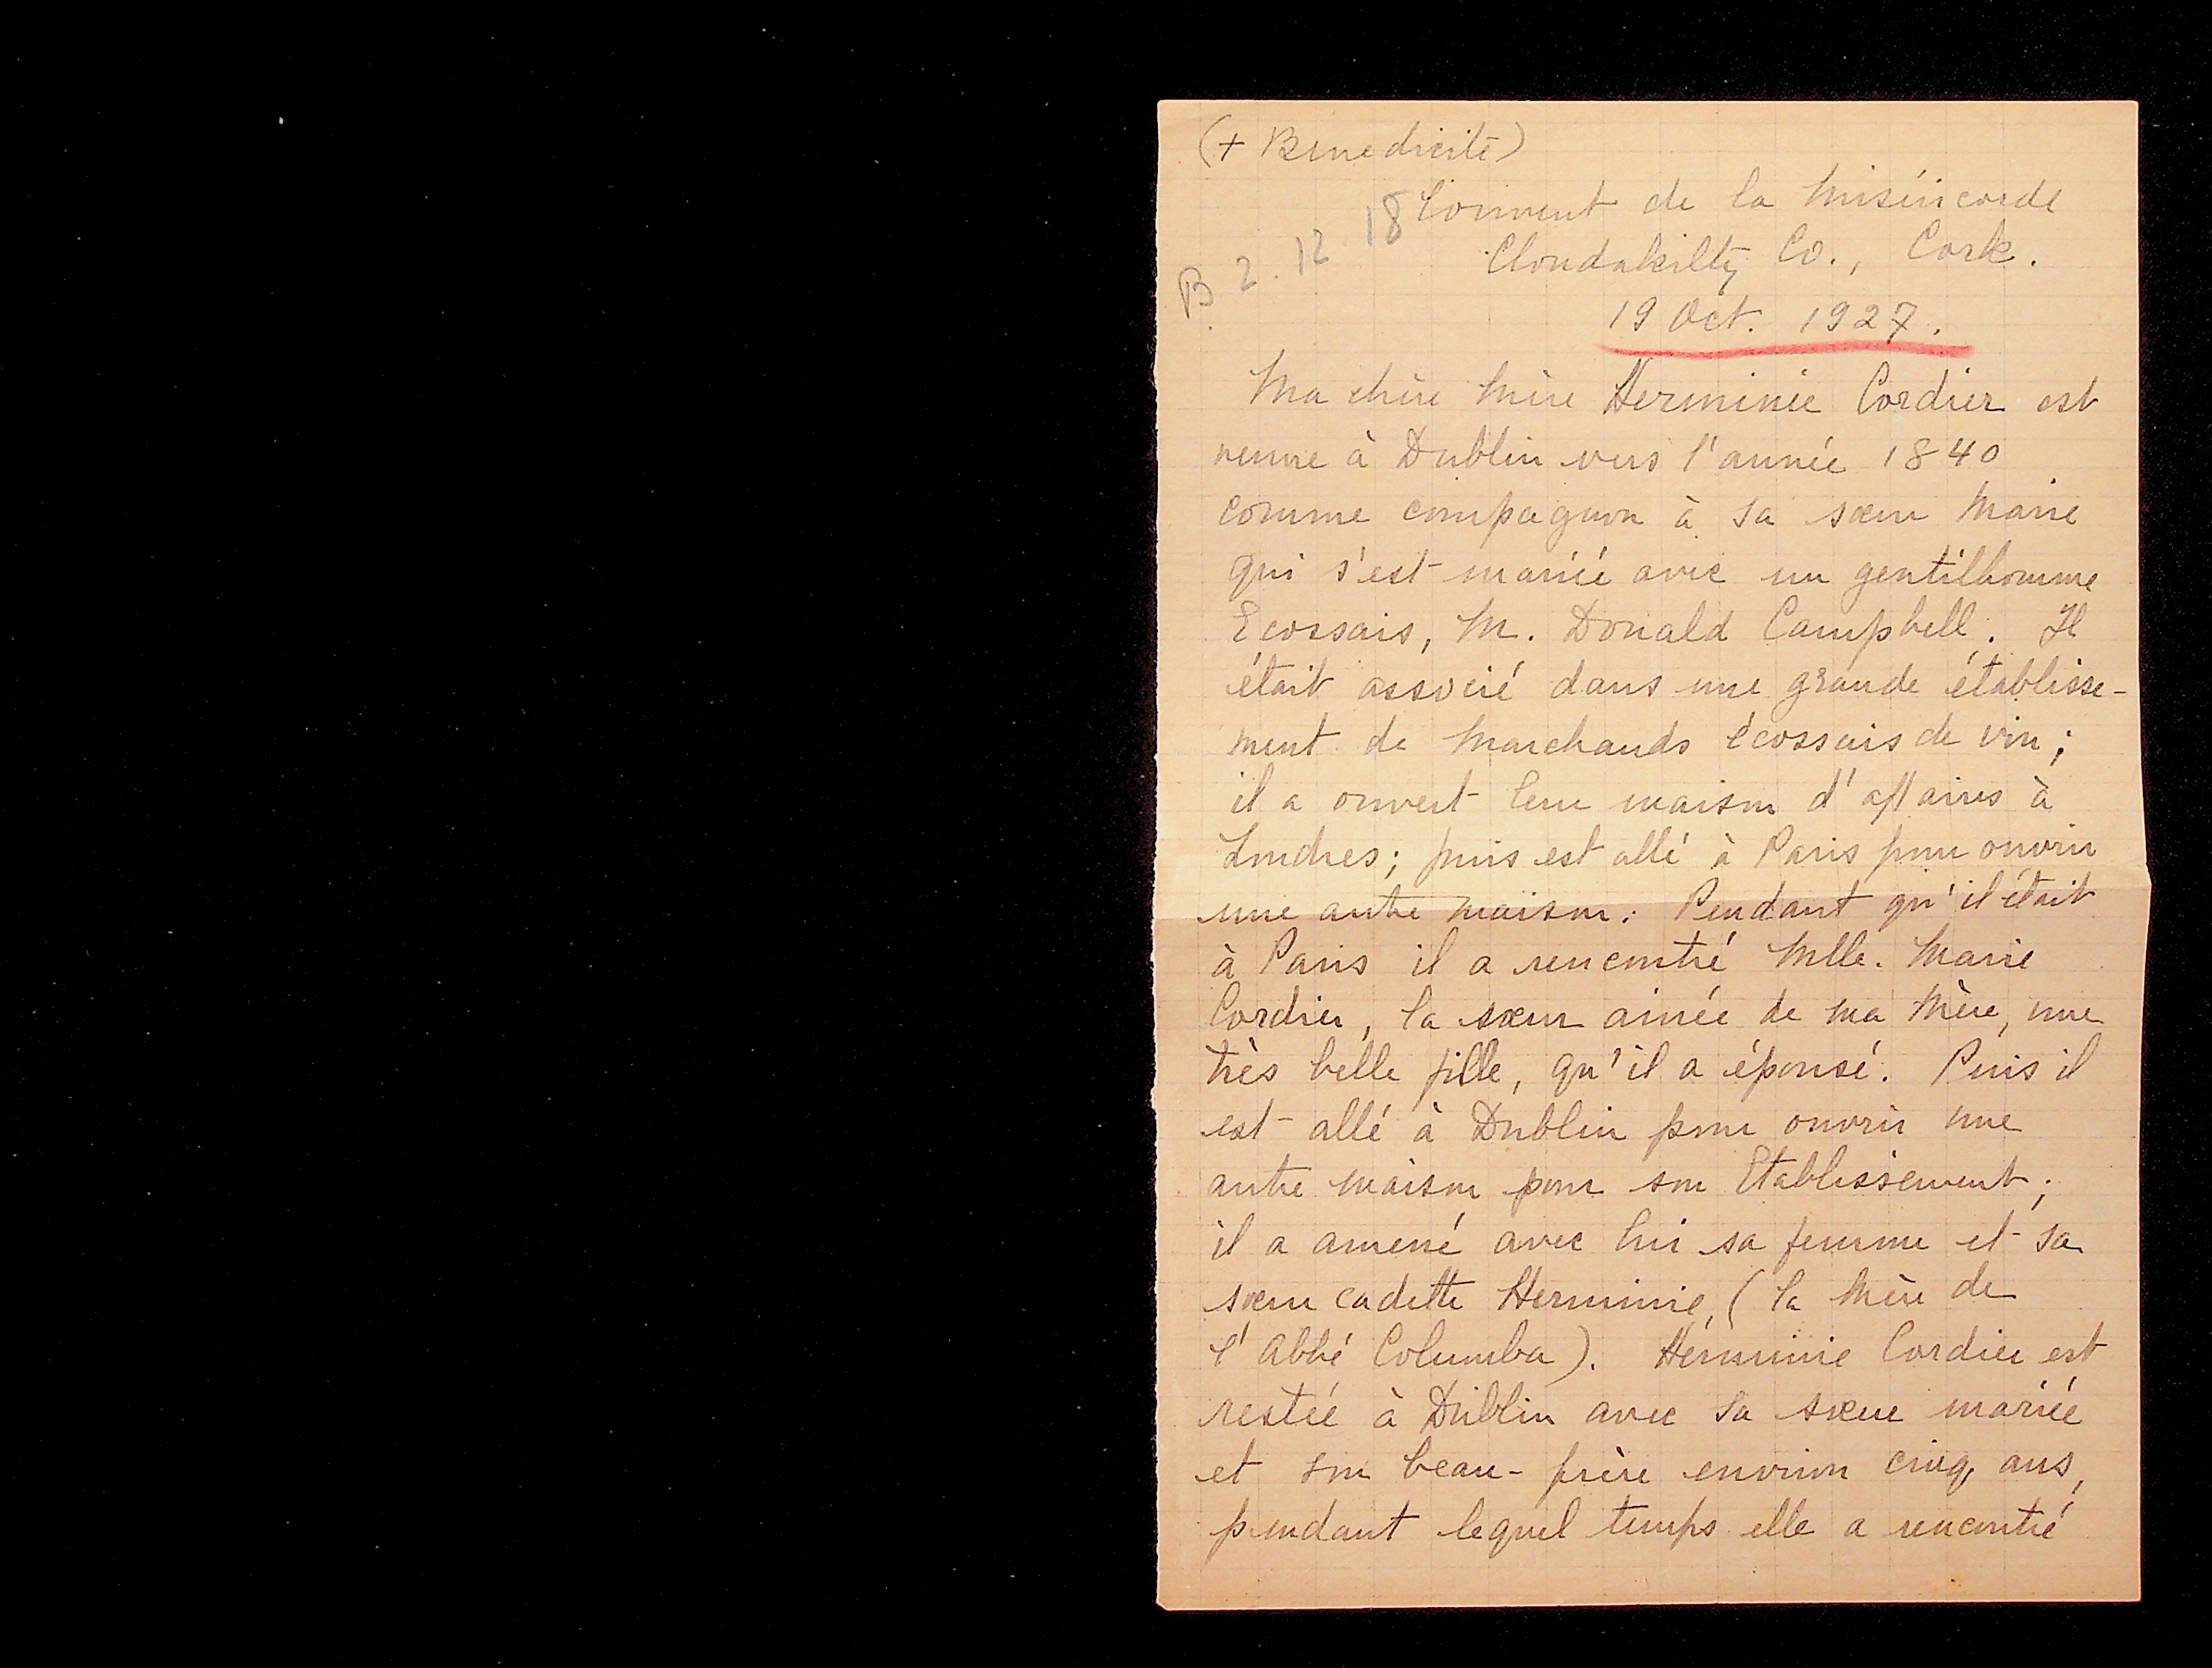 (+ Benedicite)
Couvent de la Miséricorde
B. 2. 12 18
Clonakilty Co., Cork.
19 Oct. 1927.
Ma chère Mère Herminie Cordier est
venue à Dublin vers l'année 1840
comme compagnon à sa sœur Marie
qui s'est mariée avec un gentilhomme
Ecossais, M. Donald Campbell. Il
était associé dans une grande établisse-
ment de Marchands écossais de vin;
il a ouvert leur maison d'affaires à
Londres; puis est allé à Paris pour ouvrir
une autre maison. Pendant qu'il était
à Paris il a rencontré Mlle. Marie
Cordier, la sœur ainée de ma Mère, une
très belle fille, qu'il a épousé. Puis il
est allé à Dublin pour ouvrir une
autre maison pour son Etablissement;
il a amené avec lui sa femme et sa
sœur cadette Herminie, (la Mère de
l'Abbé Columba). Herminie Cordier est
restée à Dublin avec sa sœur mariée
et son beau-frère environ cinq ans,
pendant lequel temps elle a rencontré